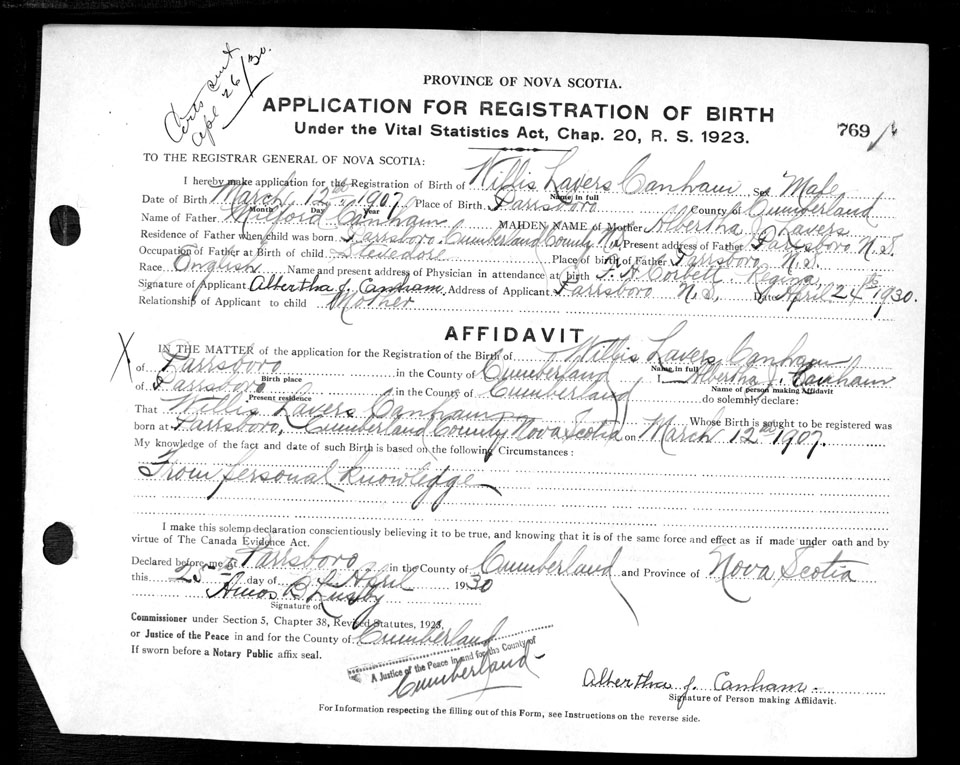 Certs sent
Apl 26/30.
PROVINCE OF NOVA SCOTIA.
APPLICATION FOR REGISTRATION OF BIRTH
Under the Vital Statistics Act, Chap. 20, R. S. 1923.
769
TO THE REGISTRAR GENERAL OF NOVA SCOTIA:
I hereby make application for the Registration of Birth of Willis Lavers Canham Sex Male
Name in full
Date of Birth March 12th 1907 Place of Birth Parrsboro County of Cumberland
Month Day Year
Name of Father Milford Canham MAIDEN NAME of Mother Albertha J. Lavers
Residence of Father when child was born Parrsboro, Cumberland County N.S. Present address of Father Parrsboro N.S.
Occupation of Father at Birth of child Stevedore Place of birth of Father Parrsboro N.S.
Race English Name and present address of Physician in attendance at birth F. A. Corbett Regina,
Signature of Applicant Albertha J. Canham. Address of Applicant Parrsboro N.S, Date April 24th 1930.
Relationship of Applicant to child Mother
AFFIDAVIT
X IN THE MATTER of the application for the Registration of the Birth of Willis Lavers Canham
Name in full
of Parrsboro in the County of Cumberland I Albertha J. Canham
Birth place
Name of person making Affidavit
of Parrsboro in the County of Cumberland do solemnly declare:
Present residence
That Willis Lavers Canham Whose Birth is sought to be registered was
born at Parrsboro, Cumberland County Nova Scotia on March 12th 1907.
My knowledge of the fact and date of such Birth is based on the following Circumstances:
From personal knowledge
I make this solemn declaration conscientiously believing it to be true, and knowing that it is of the same force and effect as if made under oath and by
virtue of The Canada Evidence Act.
Declared before me at Parrsboro in the County of Cumberland and Province of Nova Scotia
this 25th day of April 1930
Amos B Lusby
Signature of
Commissioner under Section 5, Chapter 38, Revised Statutes, 1923,
or Justice of the Peace in and for the County of Cumberland
If sworn before a Notary Public affix seal.
A Justice of the Peace in and for the County of
Cumberland
Albertha J. Canham.
Signature of Person making Affidavit.
For Information respecting the filling out of this Form, see Instructions on the reverse side.